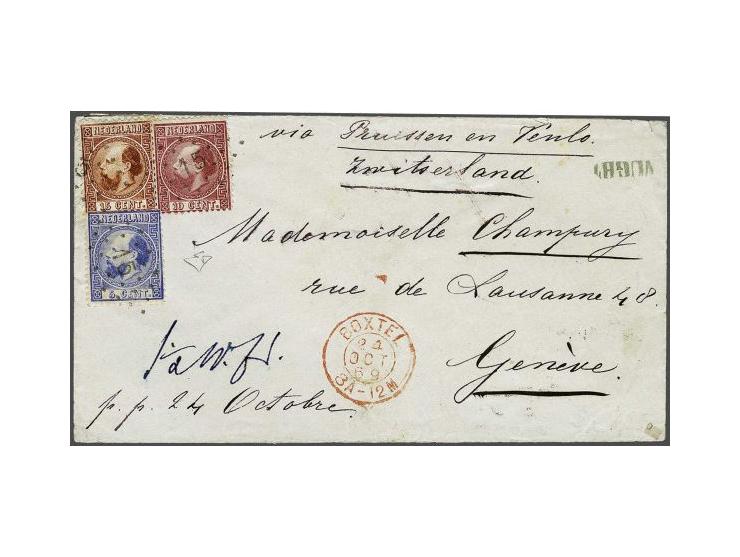 NEDERLAND NEDERLAND
15 CENT. 10 CENT.
NEDERLAND
5 CENT.
via Pruissen en Venlo.
Zwitserland.
VUGHT
Mademoiselle Champury
rue de Lausanne 48.
Genève.
BOXTEL
24
OCT
69
8A-12M
p. p. 24 Octobre.